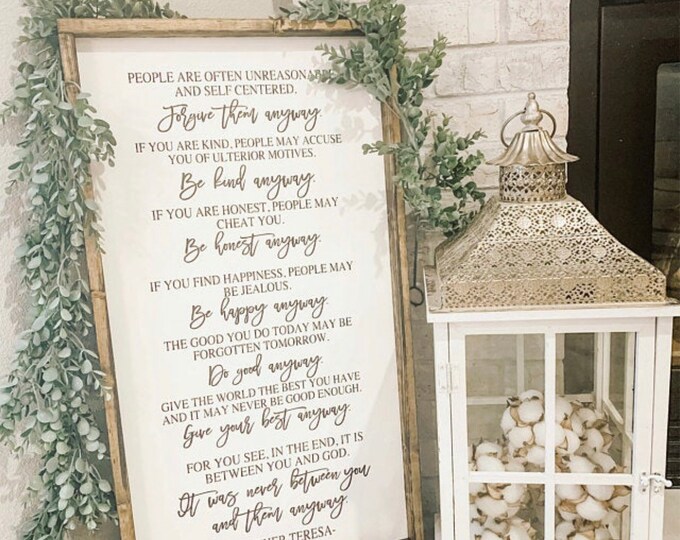 PEOPLE ARE OFTEN
AND SELF CENTERED.
Forgive them anyway.
IF YOU ARE KIND, PEOPLE MAY ACCUSE
YOU OF ULTERIOR MOTIVES.
Be kind anyway.
IF YOU ARE HONEST, PEOPLE MAY
CHEAT YOU.
Be honest anyway.
IF YOU FIND HAPPINESS, PEOPLE MAY
BE JEALOUS.
Be happy anyway.
THE GOOD YOU DO TODAY MAY BE
FORGOTTEN TOMORROW.
Do good anyway.
GIVE THE WORLD THE BEST YOU HAVE
AND IT MAY NEVER BE GOOD ENOUGH.
Give your best anyway.
FOR YOU SEE, IN THE END, IT IS
BETWEEN YOU AND GOD.
It was never between you
and them anyway.
TERESA-